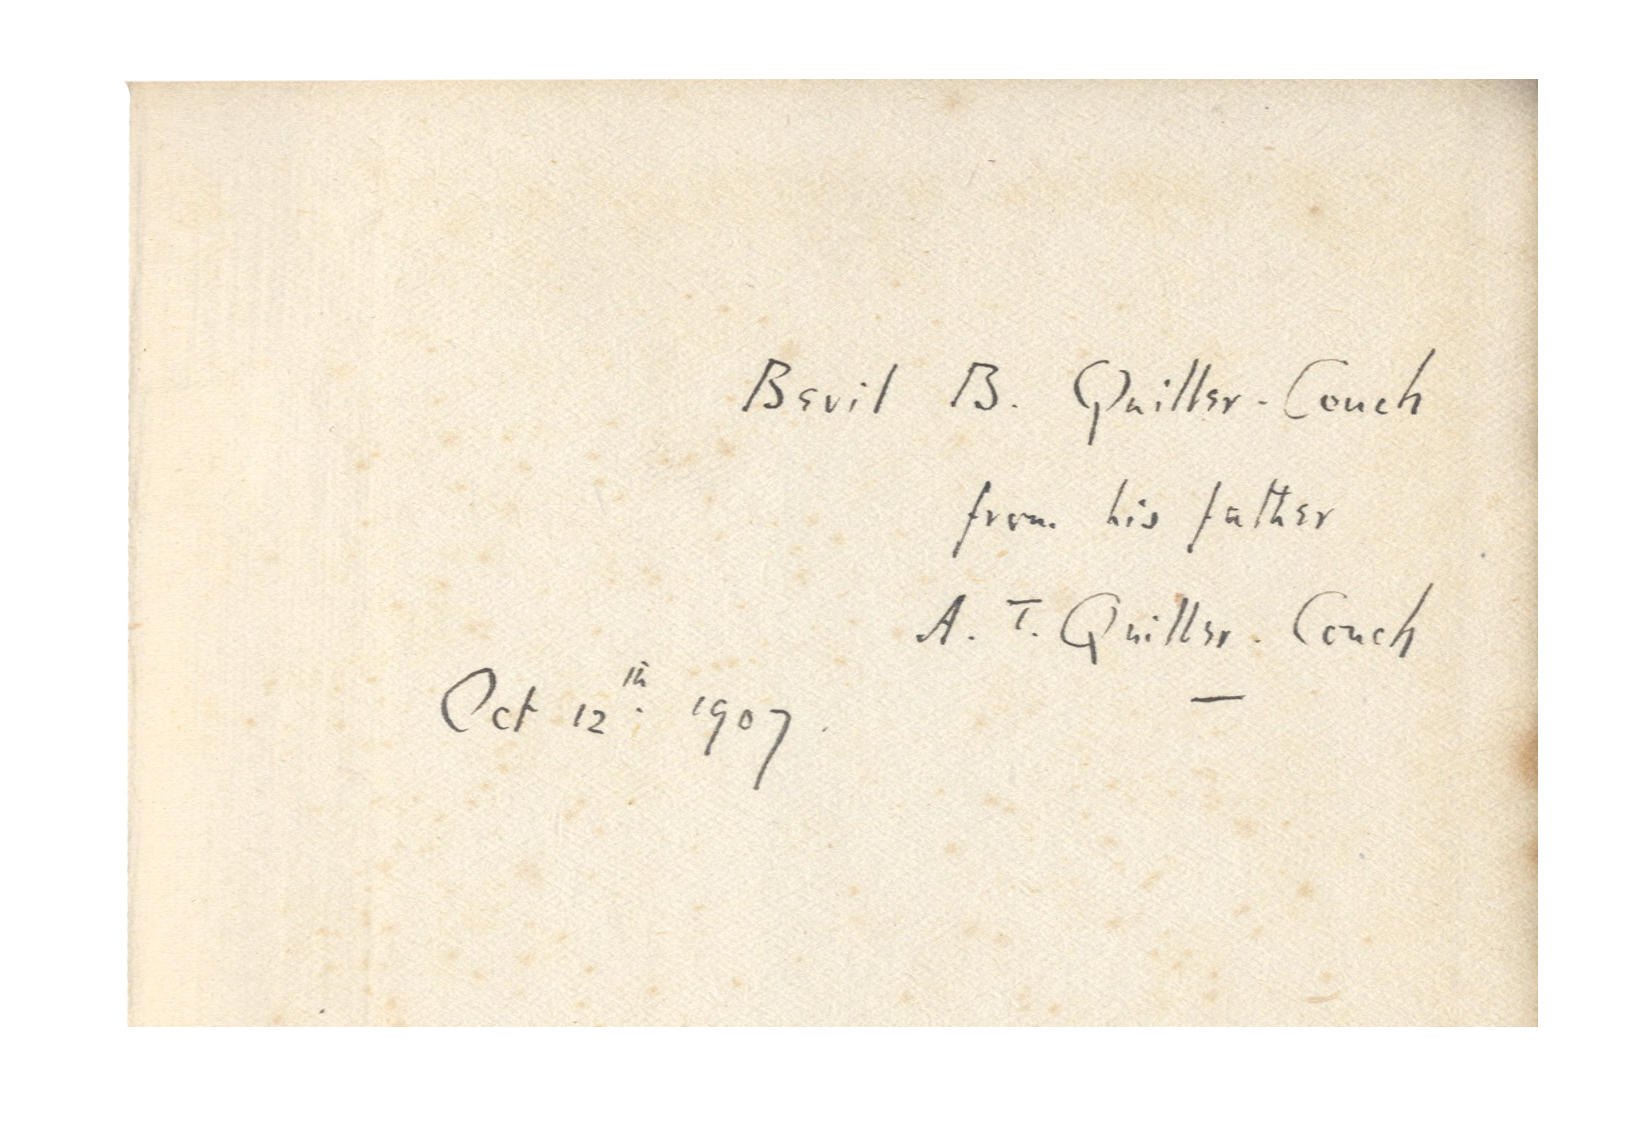 Bevil B. Quiller-Couch
from his father
A. T. Quiller-Couch
Oct 12th. 1907.